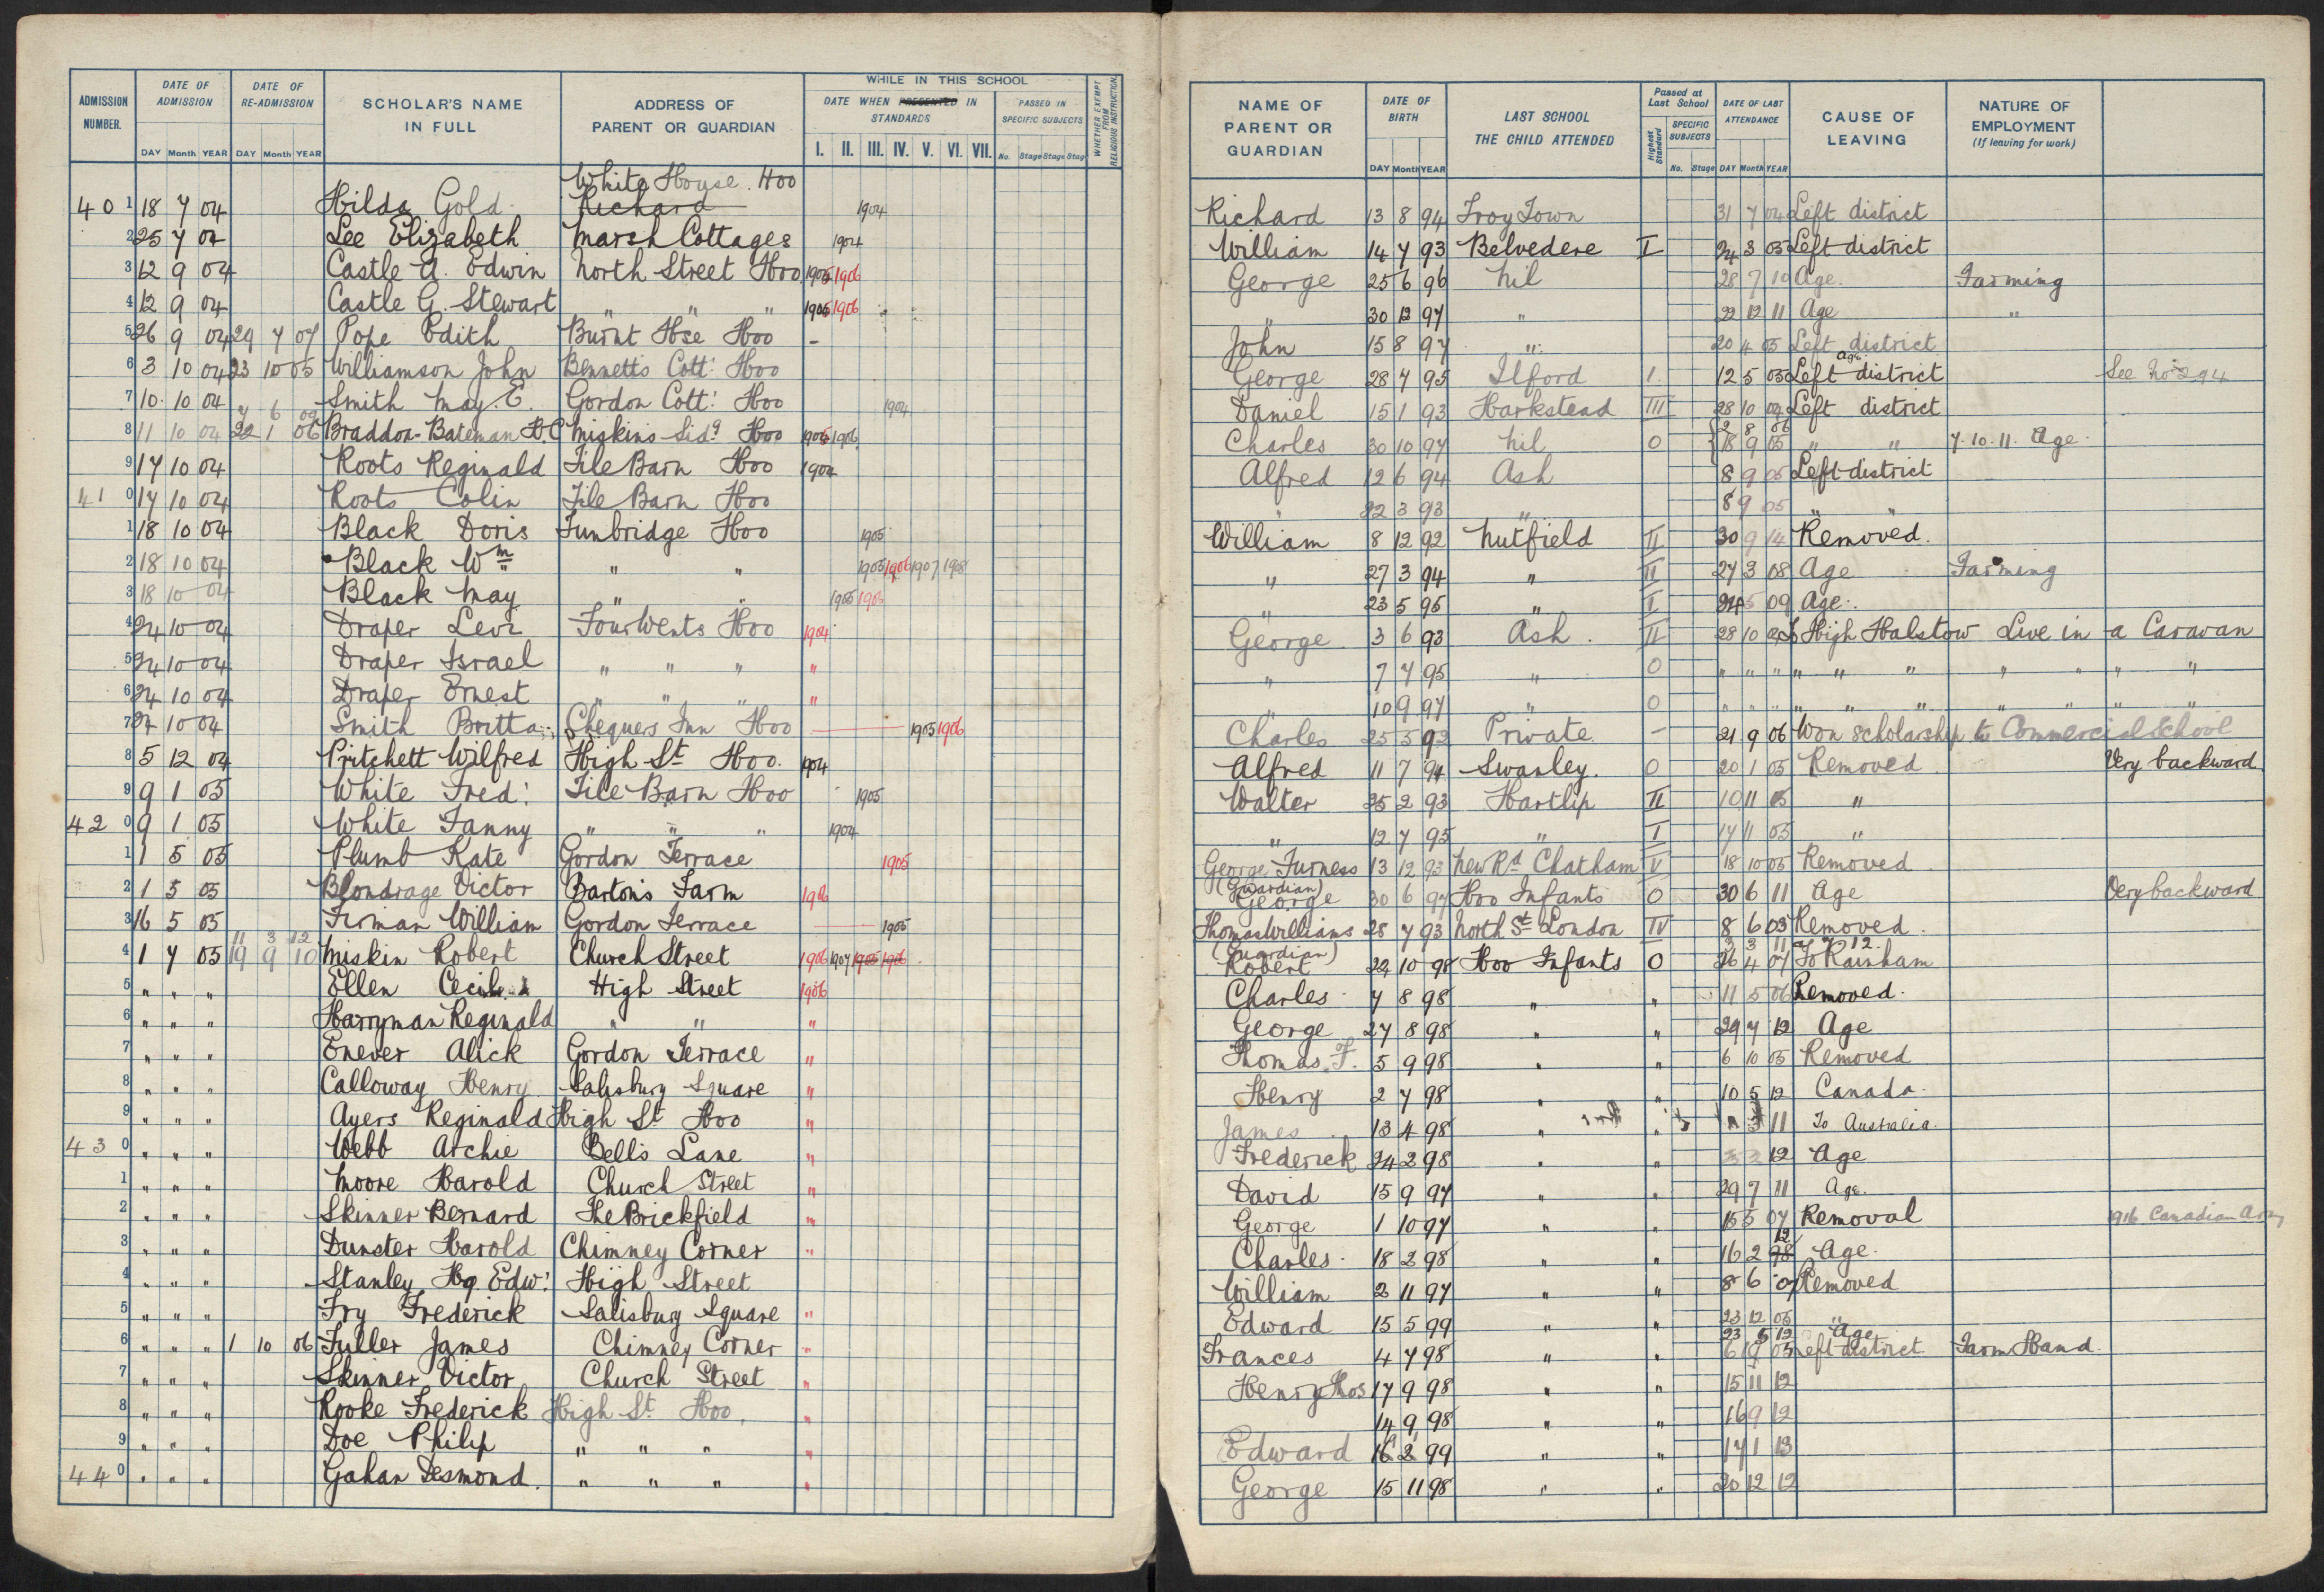 ADMISSION NUMBER. DATE OF ADMISSION DATE OF RE-ADMISSION SCHOLAR'S NAME IN FULL ADDRESS OF PARENT OR GUARDIAN WHILE IN THIS SCHOOL
DATE WHEN PRESENTED IN STANDARDS PASSED IN SPECIFIC SUBJECTS WHETHER EXEMPT FROM RELIGIOUS INSTRUCTION
DAY Month YEAR DAY Month YEAR I. II. III. IV. V. VI. VII. No. Stage Stage Stage
White House. Hoo
401 18 7 04 Hilda Gold Richard 1904
2 25 7 04 Lee Elizabeth Marsh Cottages 1904
3 12 9 04 Castle A. Edwin North Street Hoo 1905 1906
4 12 9 04 Castle G. Stewart " " " 1905 1906
5 26 9 04 29 7 07 Pope Edith Burnt Hse Hoo -
6 3 10 04 23 10 05 Williamson John Bennetts Cott: Hoo
7 10 10 04 Smith May. E. Gordon Cott: Hoo 1904
7 6 09
8 11 10 04 22 1 06 Braddon-Bateman H.C Miskins Sidg Hoo 1905 1906
9 17 10 04 Roots Reginald Tile Barn Hoo 1904
41 0 17 10 04 Roots Colin Tile Barn Hoo
1 18 10 04 Black Doris Tunbridge Hoo 1905
2 18 10 04 Black Wm " " 1905 1906 1907 1908
3 18 10 04 Black May " " 1905 1906
4 24 10 04 Draper Levi Four Wents Hoo 1904
5 24 10 04 Draper Israel " " " "
6 24 10 04 Draper Ernest " " " "
7 24 10 04 Smith Britta Chequers Inn Hoo 1905 1906
8 5 12 04 Pritchett Wilfred High St Hoo. 1904
9 9 1 05 White Fred: Tile Barn Hoo 1905
42 0 9 1 05 White Fanny " " " 1904
1 1 5 05 Plumb Kate Gordon Terrace 1905
2 1 5 05 Blondrage Victor Bartons Farm 1906
3 16 5 05 Firman William Gordon Terrace 1905
11 3 12
4 1 7 05 19 9 10 Miskin Robert Church Street 1906 1907 1905 1906
5 " " " Ellen Cecil High Street 1906
6 " " " Harryman Reginald " " "
7 " " " Enever Alick Gordon Terrace "
8 " " " Calloway Henry Salisbury Square "
9 " " " Ayers Reginald High St Hoo "
43 0 " " " Webb Archie Bells Lane "
1 " " " Moore Harold Church Street "
2 " " " Skinner Bernard The Brickfield "
3 " " " Dunster Harold Chimney Corner "
4 " " " Stanley Hy. Edw: High Street
5 " " " Fry Frederick Salisbury Square "
6 " " " 1 10 06 Fuller James Chimney Corner "
7 " " " Skinner Victor Church Street "
8 " " " Rooke Frederick High St Hoo, "
9 " " " Doe Philip " " " "
44 0 " " " Gahan Desmond. " " " "
NAME OF PARENT OR GUARDIAN DATE OF BIRTH LAST SCHOOL THE CHILD ATTENDED Passed at Last School DATE OF LAST ATTENDANCE CAUSE OF LEAVING NATURE OF EMPLOYMENT (If leaving for work)
Highest Standard SPECIFIC SUBJECTS
DAY Month YEAR No. Stage DAY Month YEAR
Richard 13 8 94 Troy Town 31 7 04 Left district
William 14 7 93 Belvedere I 24 3 05 Left district
George 25 6 96 Nil 28 7 10 Age. Farming
" 30 12 97 " 22 12 11 Age "
John 15 8 97 " 20 4 05 Left district
Age
George 28 7 95 Ilford 1. 12 5 05 Left district See No 294
Daniel 15 1 93 Harkstead III 28 10 04 Left district
2 8 06
Charles 30 10 97 Nil 0 18 9 05 " " 7.10.11. Age.
Alfred 12 6 94 Ash 8 9 05 Left district
" 22 3 93 " 8 9 05 " "
William 8 12 92 Nutfield II 30 9 14 Removed.
" 27 3 94 " II 27 3 08 Age Farming
" 23 5 95 " I 5 09 Age.
George 3 6 93 Ash. II 28 10 04 To High Halstow Live in a Caravan
" 7 7 95 " 0 " " " " " " " " " "
" 10 9 97 " 0 " " " " " " " " " "
Charles 25 5 92 Private - 21 9 06 Won scholarship to Commercial School
Alfred 11 7 94 Swanley. 0 20 1 05 Removed Very backward
Walter 25 2 93 Hartlip II 10 11 05 "
" 12 7 95 " I 17 11 05 "
George Furness 13 12 93 New Rd Chatham V 18 10 05 Removed
(Guardian)
George 30 6 97 Hoo Infants 0 30 6 11 Age Very backward
Thomas Williams 28 7 93 North St London IV 8 6 05 Removed.
(Guardian) 3 3 11 7 12.
Robert 22 10 98 Hoo Infants 0 26 4 07 To Rainham
Charles 7 8 98 " " 11 5 06 Removed.
George 27 8 98 " " 29 7 12 Age
Thomas. F. 5 9 98 " " 6 10 05 Removed
Henry 2 7 98 " " 10 5 12 Canada.
James 13 4 98 " " 3 11 To Australia.
Frederick 24 2 98 " " 12 Age
David 15 9 97 " " 29 7 11 Age.
George 1 10 97 " " 15 5 07 Removal 1916 Canadian Army
12
Charles. 18 2 98 " " 16 2 98 Age.
William 2 11 97 " " 8 6 07 Removed
Edward 15 5 99 " " 23 12 05 "
23 5 12 Age
Frances 4 7 98 " " 6 9 05 Left district Farm Hand.
Henry Thos 17 9 98 " " 15 11 12
14 9 98 " " 16 9 12
Edward 16 2 99 " " 17 1 13
George 15 11 98 " " 20 12 12